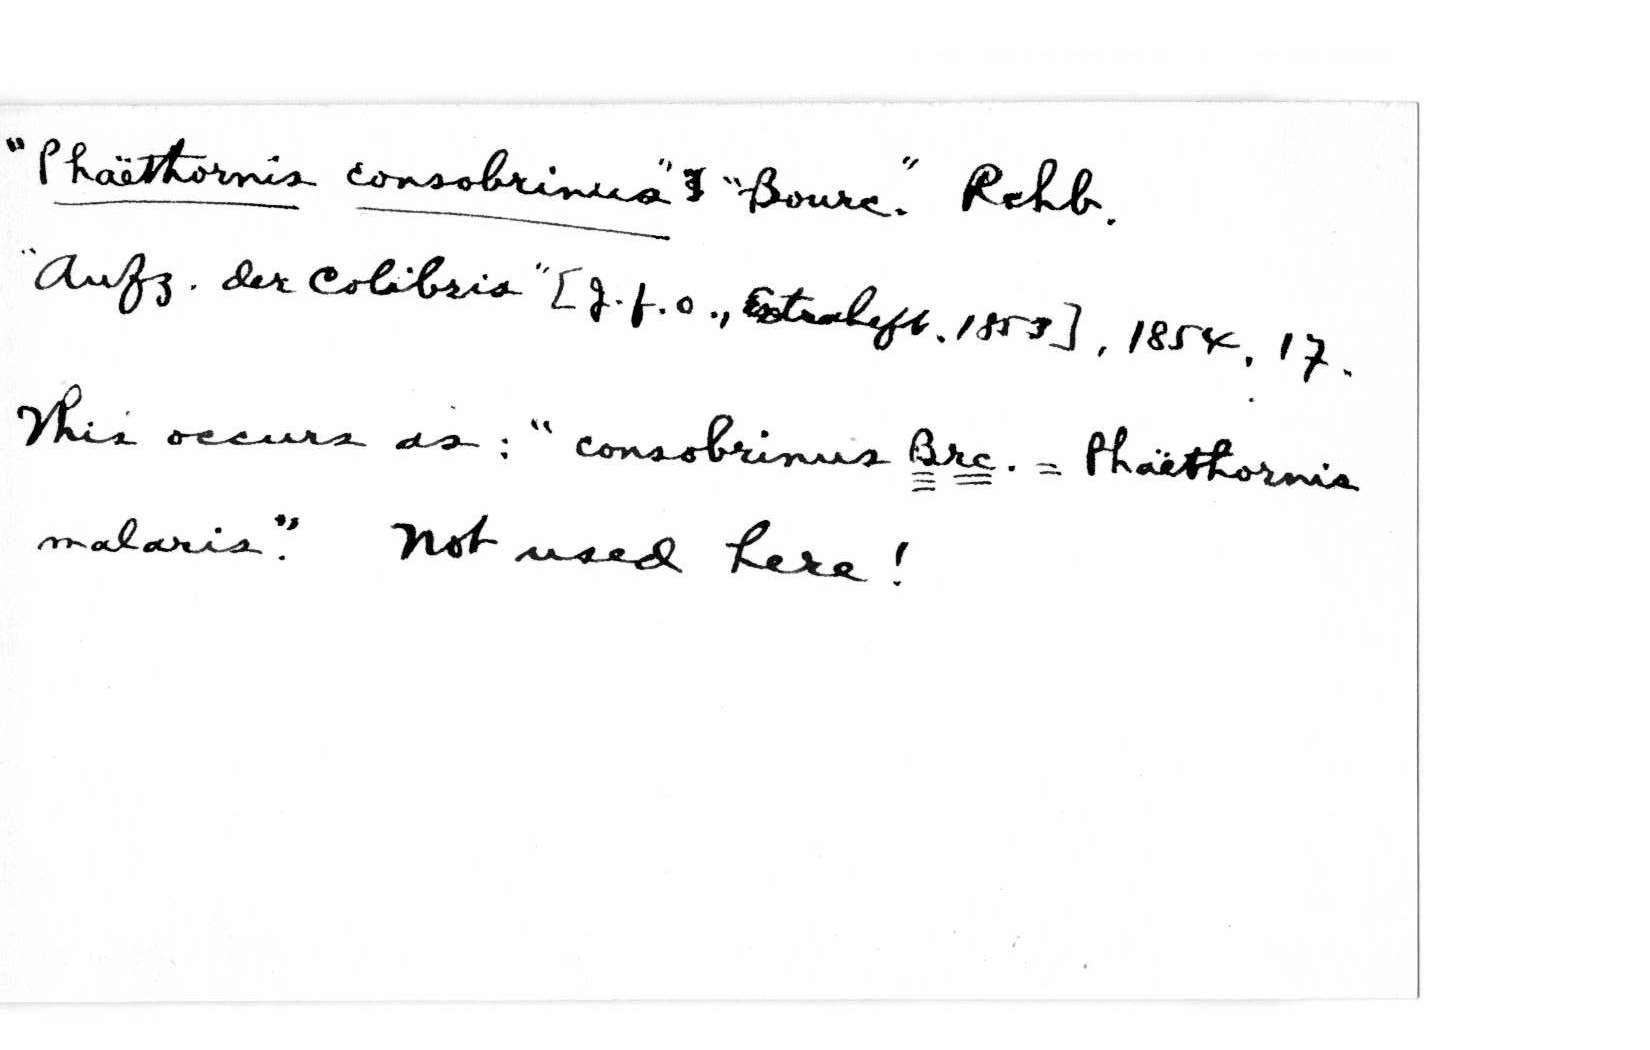 "Phaëthornis consobrinus" "Bourc." Rchb.
"Aufz. der Colibris" [J. f. O., Extraheft. 1853], 1854, 17.
This occurs as: "consobrinus Brc. = Phaëthornis
malaris". Not used here!